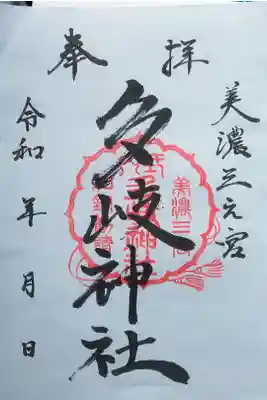 美濃三之宮
奉拝
多岐神社
令和 年 月 日
美濃三宮